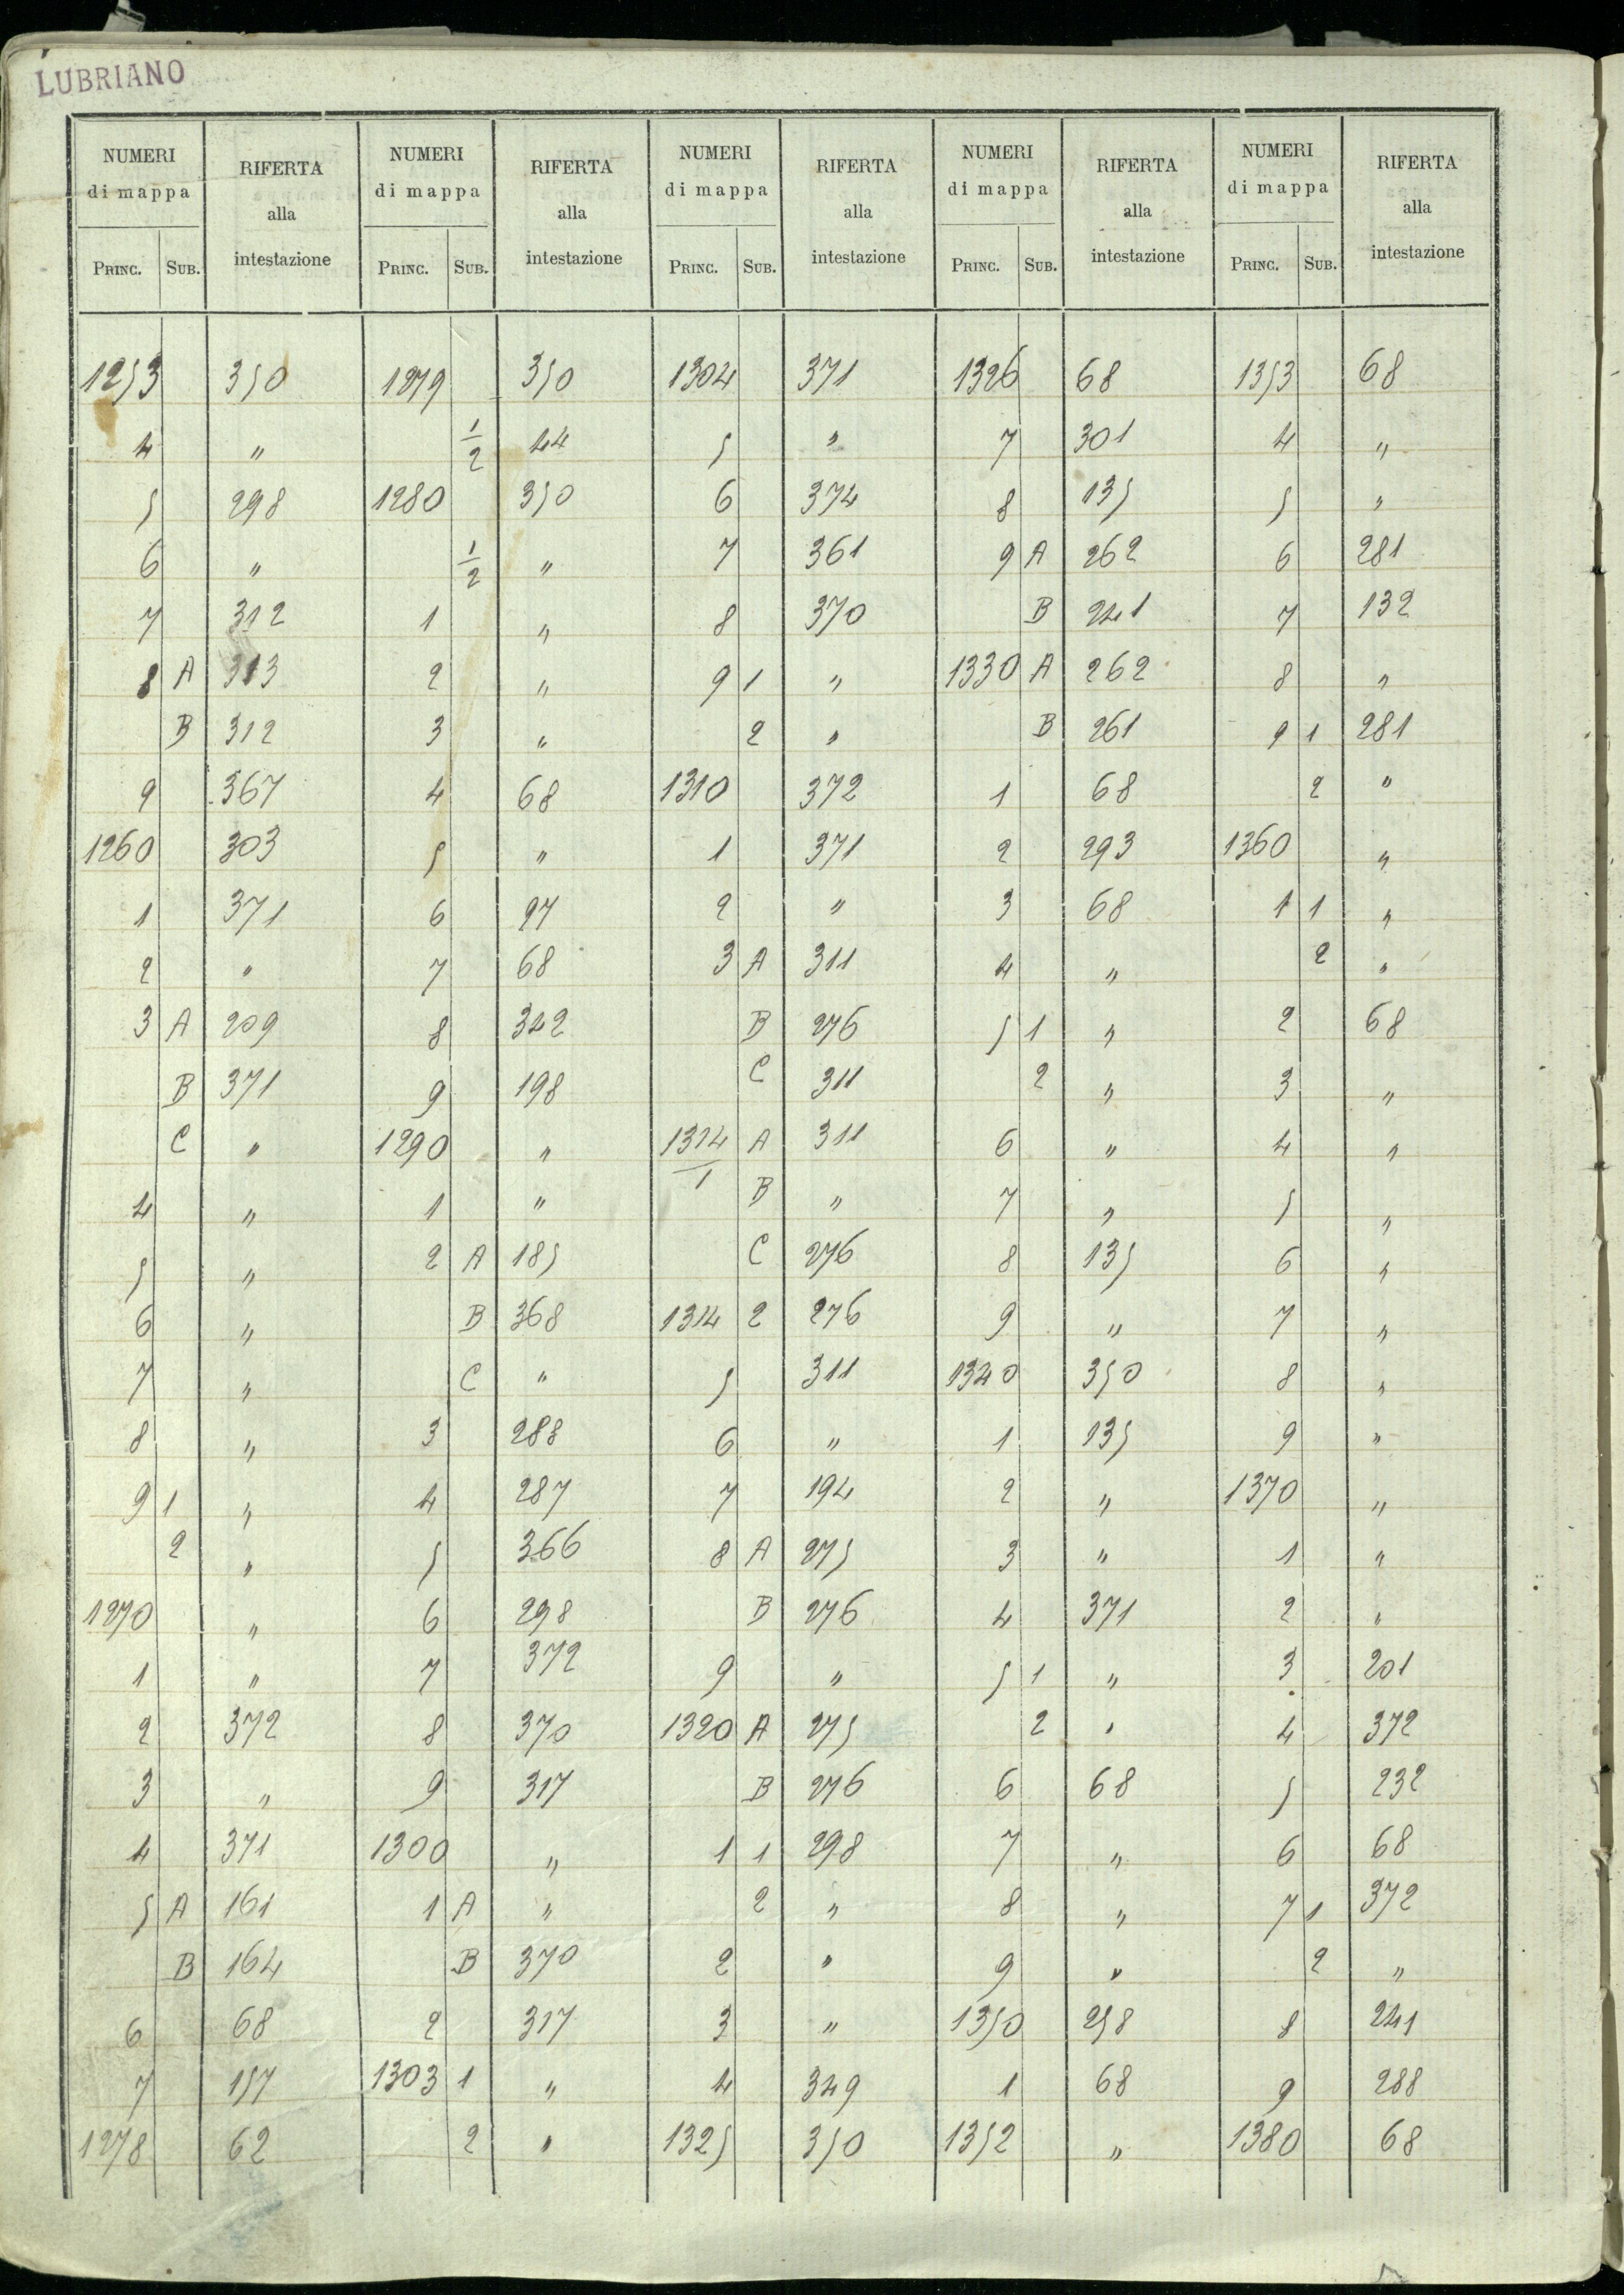 LUBRIANO
NUMERI di mappa RIFERTA alla intestazione NUMERI di mappa RIFERTA alla intestazione NUMERI di mappa RIFERTA alla intestazione NUMERI di mappa RIFERTA alla intestazione NUMERI di mappa RIFERTA alla intestazione
PRINC. SUB. PRINC. SUB. PRINC. SUB. PRINC. SUB. PRINC. SUB.
1253 350 1279 350 1304 371 1326 68 1353 68
4 " 1/2 44 5 " 7 301 4 "
5 298 1280 350 6 374 8 135 5 "
6 " 1/2 " 7 361 9 A 262 6 281
7 312 1 " 8 370 B 241 7 132
8 A 313 2 " 9 1 " 1330 A 262 8 "
B 312 3 " 2 " B 261 9 1 281
9 367 4 68 1310 372 1 68 2 "
1260 303 5 " 1 371 2 293 1360 "
1 371 6 97 2 " 3 68 1 1 "
2 " 7 68 3 A 311 4 " 2 "
3 A 209 8 342 B 276 5 1 " 2 68
B 371 9 198 C 311 2 " 3 "
C " 1290 " 1314/1 A 311 6 " 4 "
4 " 1 " B " 7 " 5 "
5 " 2 A 185 C 276 8 135 6 "
6 " B 368 1314 2 276 9 " 7 "
7 " C " 5 311 1340 350 8 "
8 " 3 288 6 " 1 135 9 "
9 1 " 4 287 7 194 2 " 1370 "
2 " 5 366 8 A 275 3 " 1 "
1270 " 6 298 B 276 4 371 2 "
1 " 7 372 9 " 5 1 " 3 201
2 372 8 370 1320 A 275 2 " 4 372
3 " 9 317 B 276 6 68 5 232
4 371 1300 " 1 1 298 7 " 6 68
5 A 161 1 A " 2 " 8 " 7 1 372
B 164 B 370 2 " 9 " 2 "
6 68 2 317 3 " 1350 258 8 241
7 157 1303 1 " 4 349 1 68 9 288
1278 62 2 " 1325 350 1352 " 1380 68